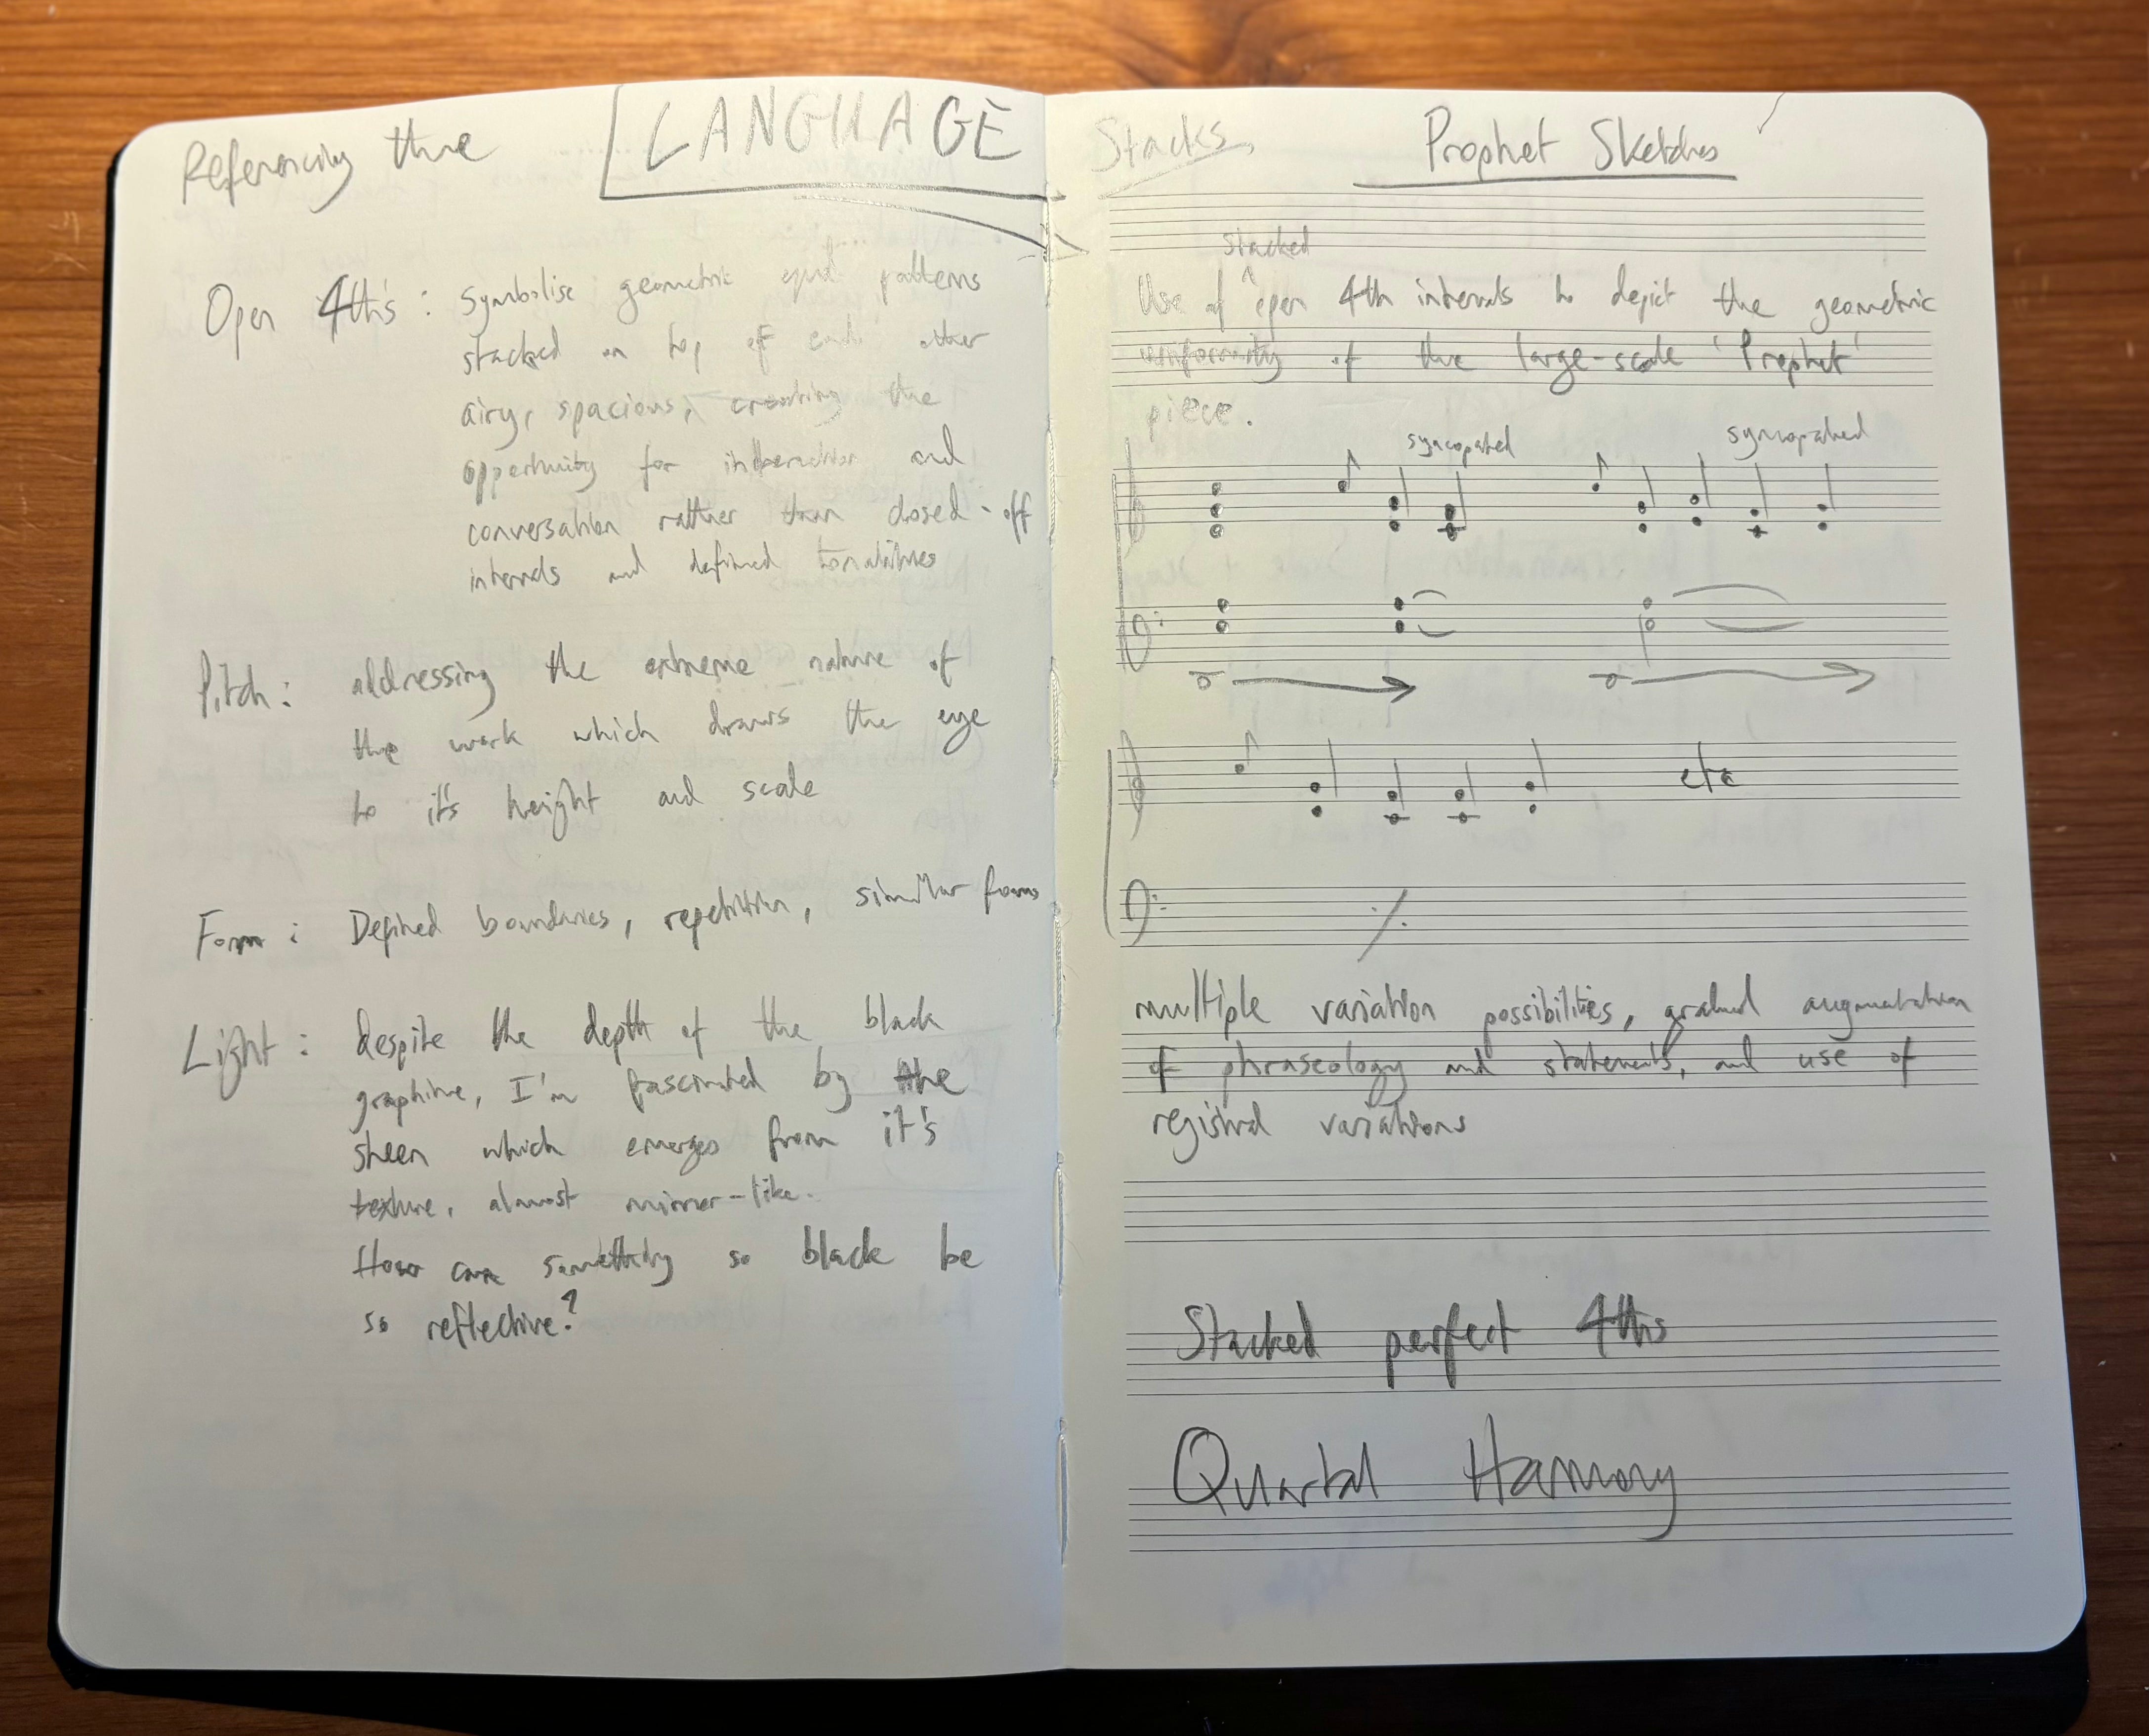 Referencing the LANGUAGE
Open 4th's : symbolise geometric equal patterns
stacked on top of each other
airy, spacious, creating the
opportunity for interaction and
conversation rather than closed-off
intervals and defined tonalities
Pitch : addressing the extreme nature of
the work which draws the eye
to it's height and scale
Form : Defined boundaries, repetition, similar forms
Light : despite the depth of the black
graphite, I'm fascinated by the
sheen which emerges from it's
texture, almost mirror-like.
How can something so black be
so reflective?
Stacks, Prophet Sketches
stacked
Use of ^ open 4th intervals to depict the geometric
uniformity of the large-scale 'Prophet'
piece.
syncopated syncopated
etc
multiple variation possibilities, gradual augmentation
of phraseology and statements, and use of
registral variations
Stacked perfect 4ths
Quartal Harmony